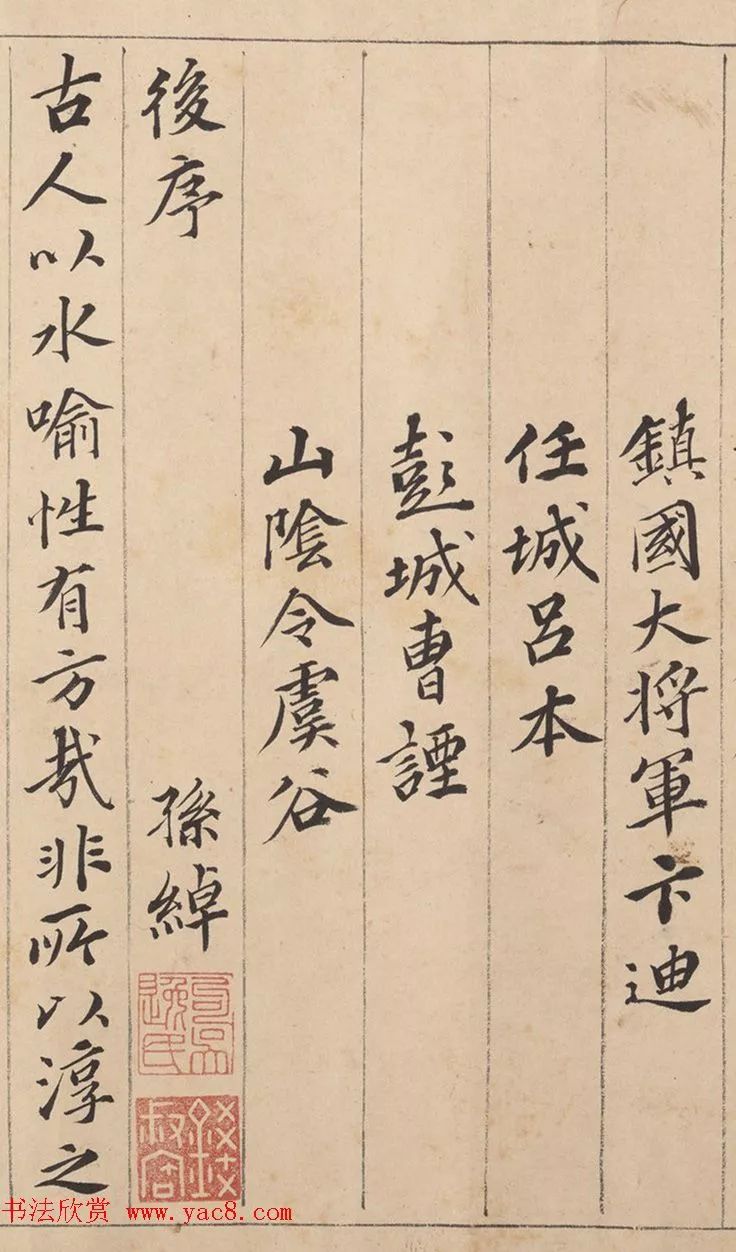 鎮國大將軍卞迪
任城呂本
彭城曹諲
山陰令虞谷
後序 孫綽
古人以水喻性有方哉非所以淳之
书法欣赏 www.yac8.com